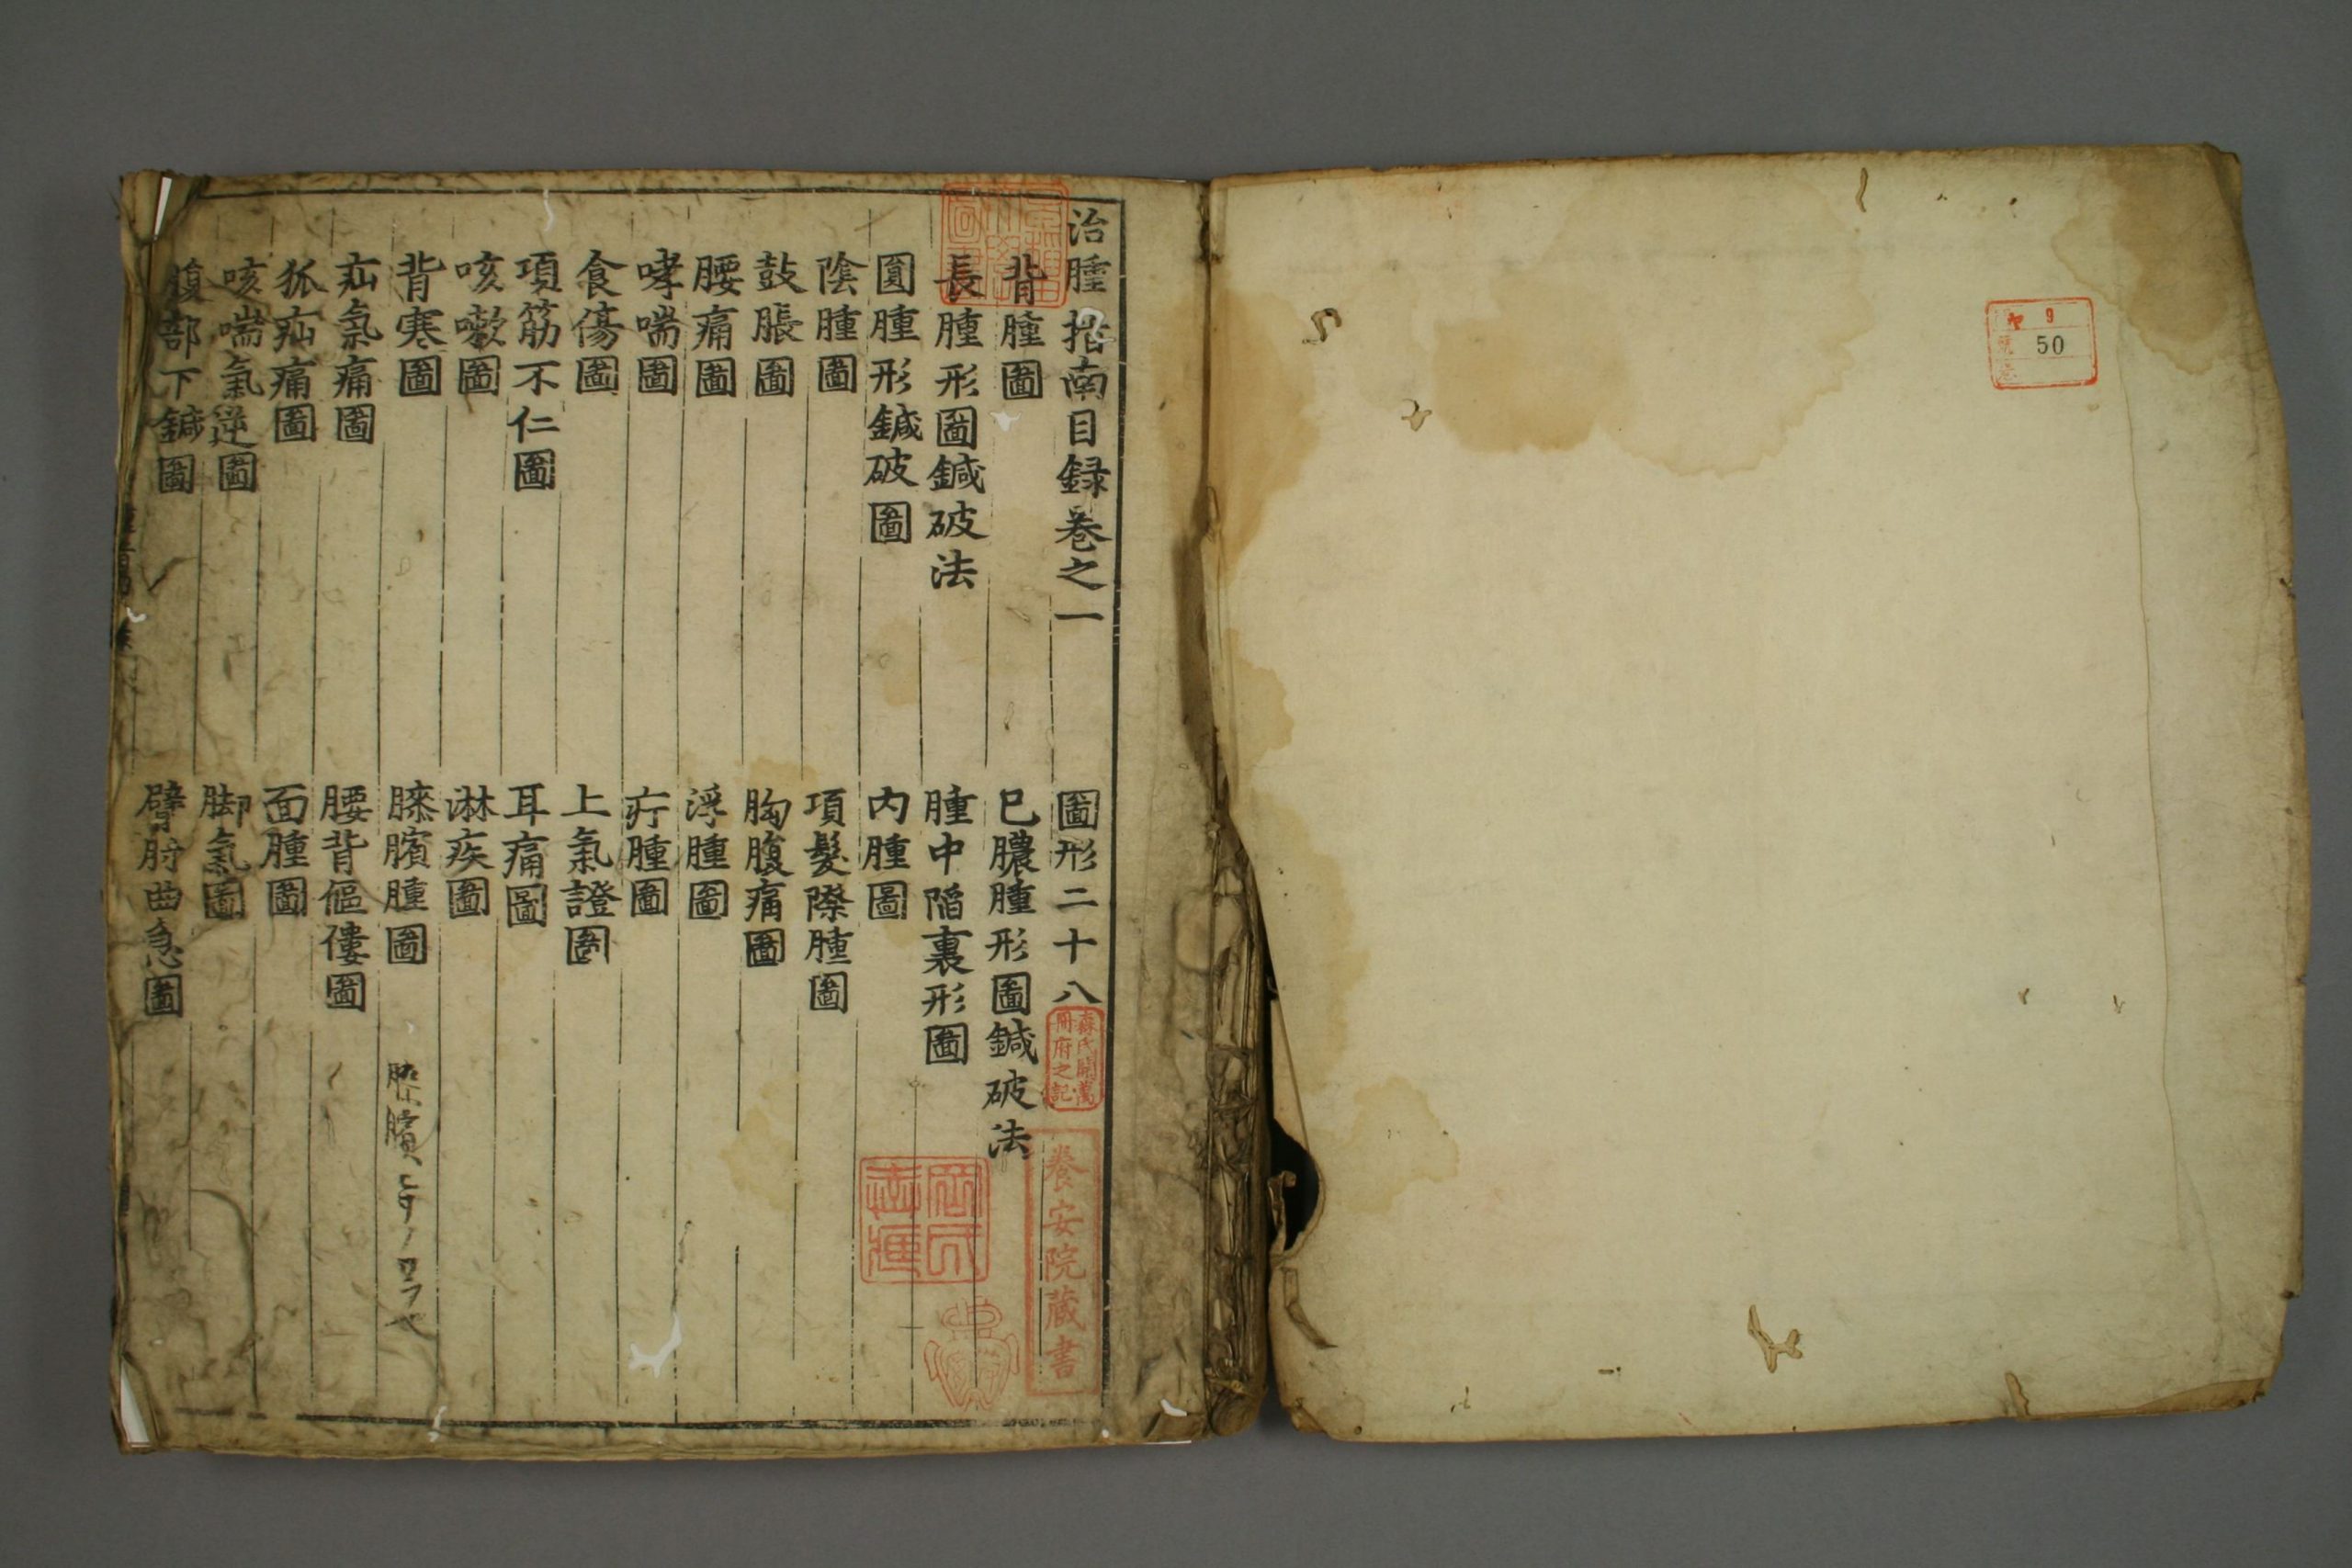 9
50
治腫指南目録巻之一 圖形二十八
背腫圖 已膿腫形圖鍼破法
長腫形圖鍼破法 腫中陷裏形圖
圓腫形鍼破圖 內腫圖
陰腫圖 項髮際腫圖
鼓脹圖 胸腹痛圖
腰痛圖 浮腫圖
哮喘圖 疔腫圖
食傷圖 上氣證圖
項筋不仁圖 耳痛圖
咳嗽圖 淋疾圖
背寒圖 膝臏腫圖
疝氣痛圖 腰背傴僂圖
狐疝痛圖 面腫圖
咳喘氣逆圖 脚氣圖
腹部下鍼圖 臂肘曲急圖
森氏開萬
冊府之記
養安院藏書